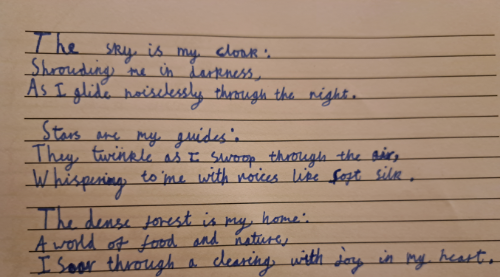 The sky is my cloak:.
Shrouding me in darkness,
As I glide noiselessly through the night.
Stars are my guides:.
They twinkle as I swoop through the air,
Whispering to me with voices like soft silk.
The dense forest is my home:.
A world of food and nature,
I soar through a clearing with joy in my heart.